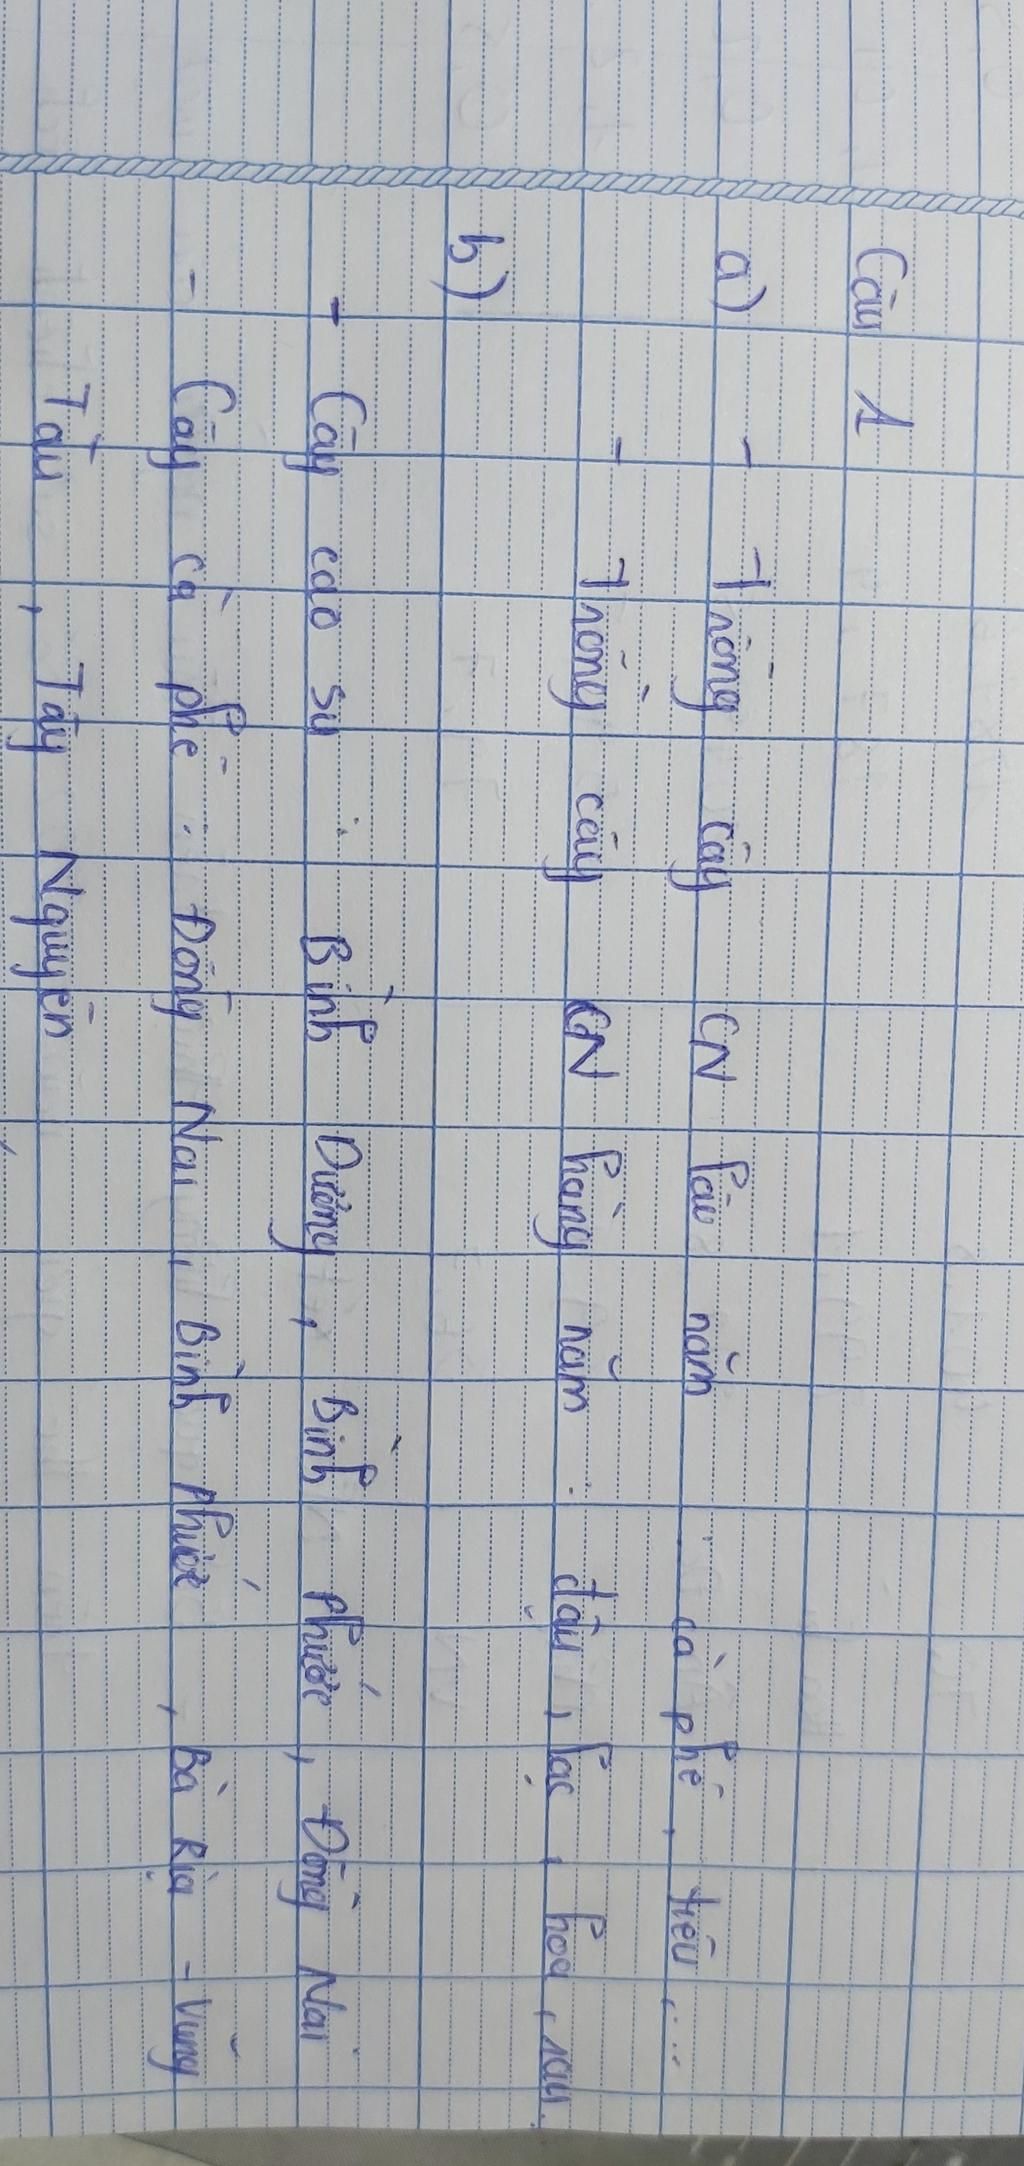 Câu 1
a) - Trồng cây CN lâu năm : cà phê, tiêu, ...
- Trồng cây CN hàng năm : đậu, lạc, hoa, rau.
b)
- Cây cao su : Bình Dương, Bình Phước, Đồng Nai
- Cây cà phê : Đồng Nai, Bình Phước, Bà Rịa - Vũng
Tàu, Tây Nguyên